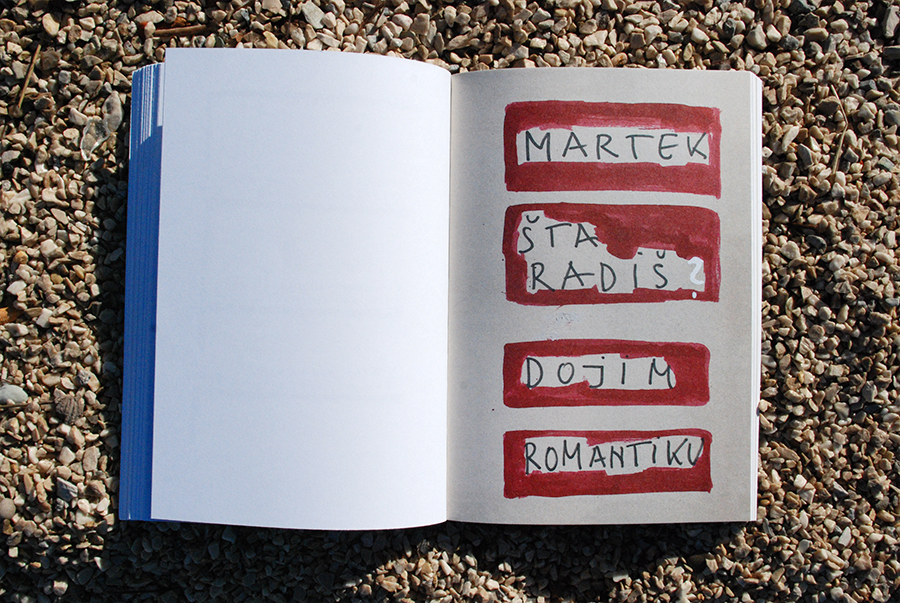 MARTEK
ŠTA
RADIŠ?
DOJIM
ROMANTIKU